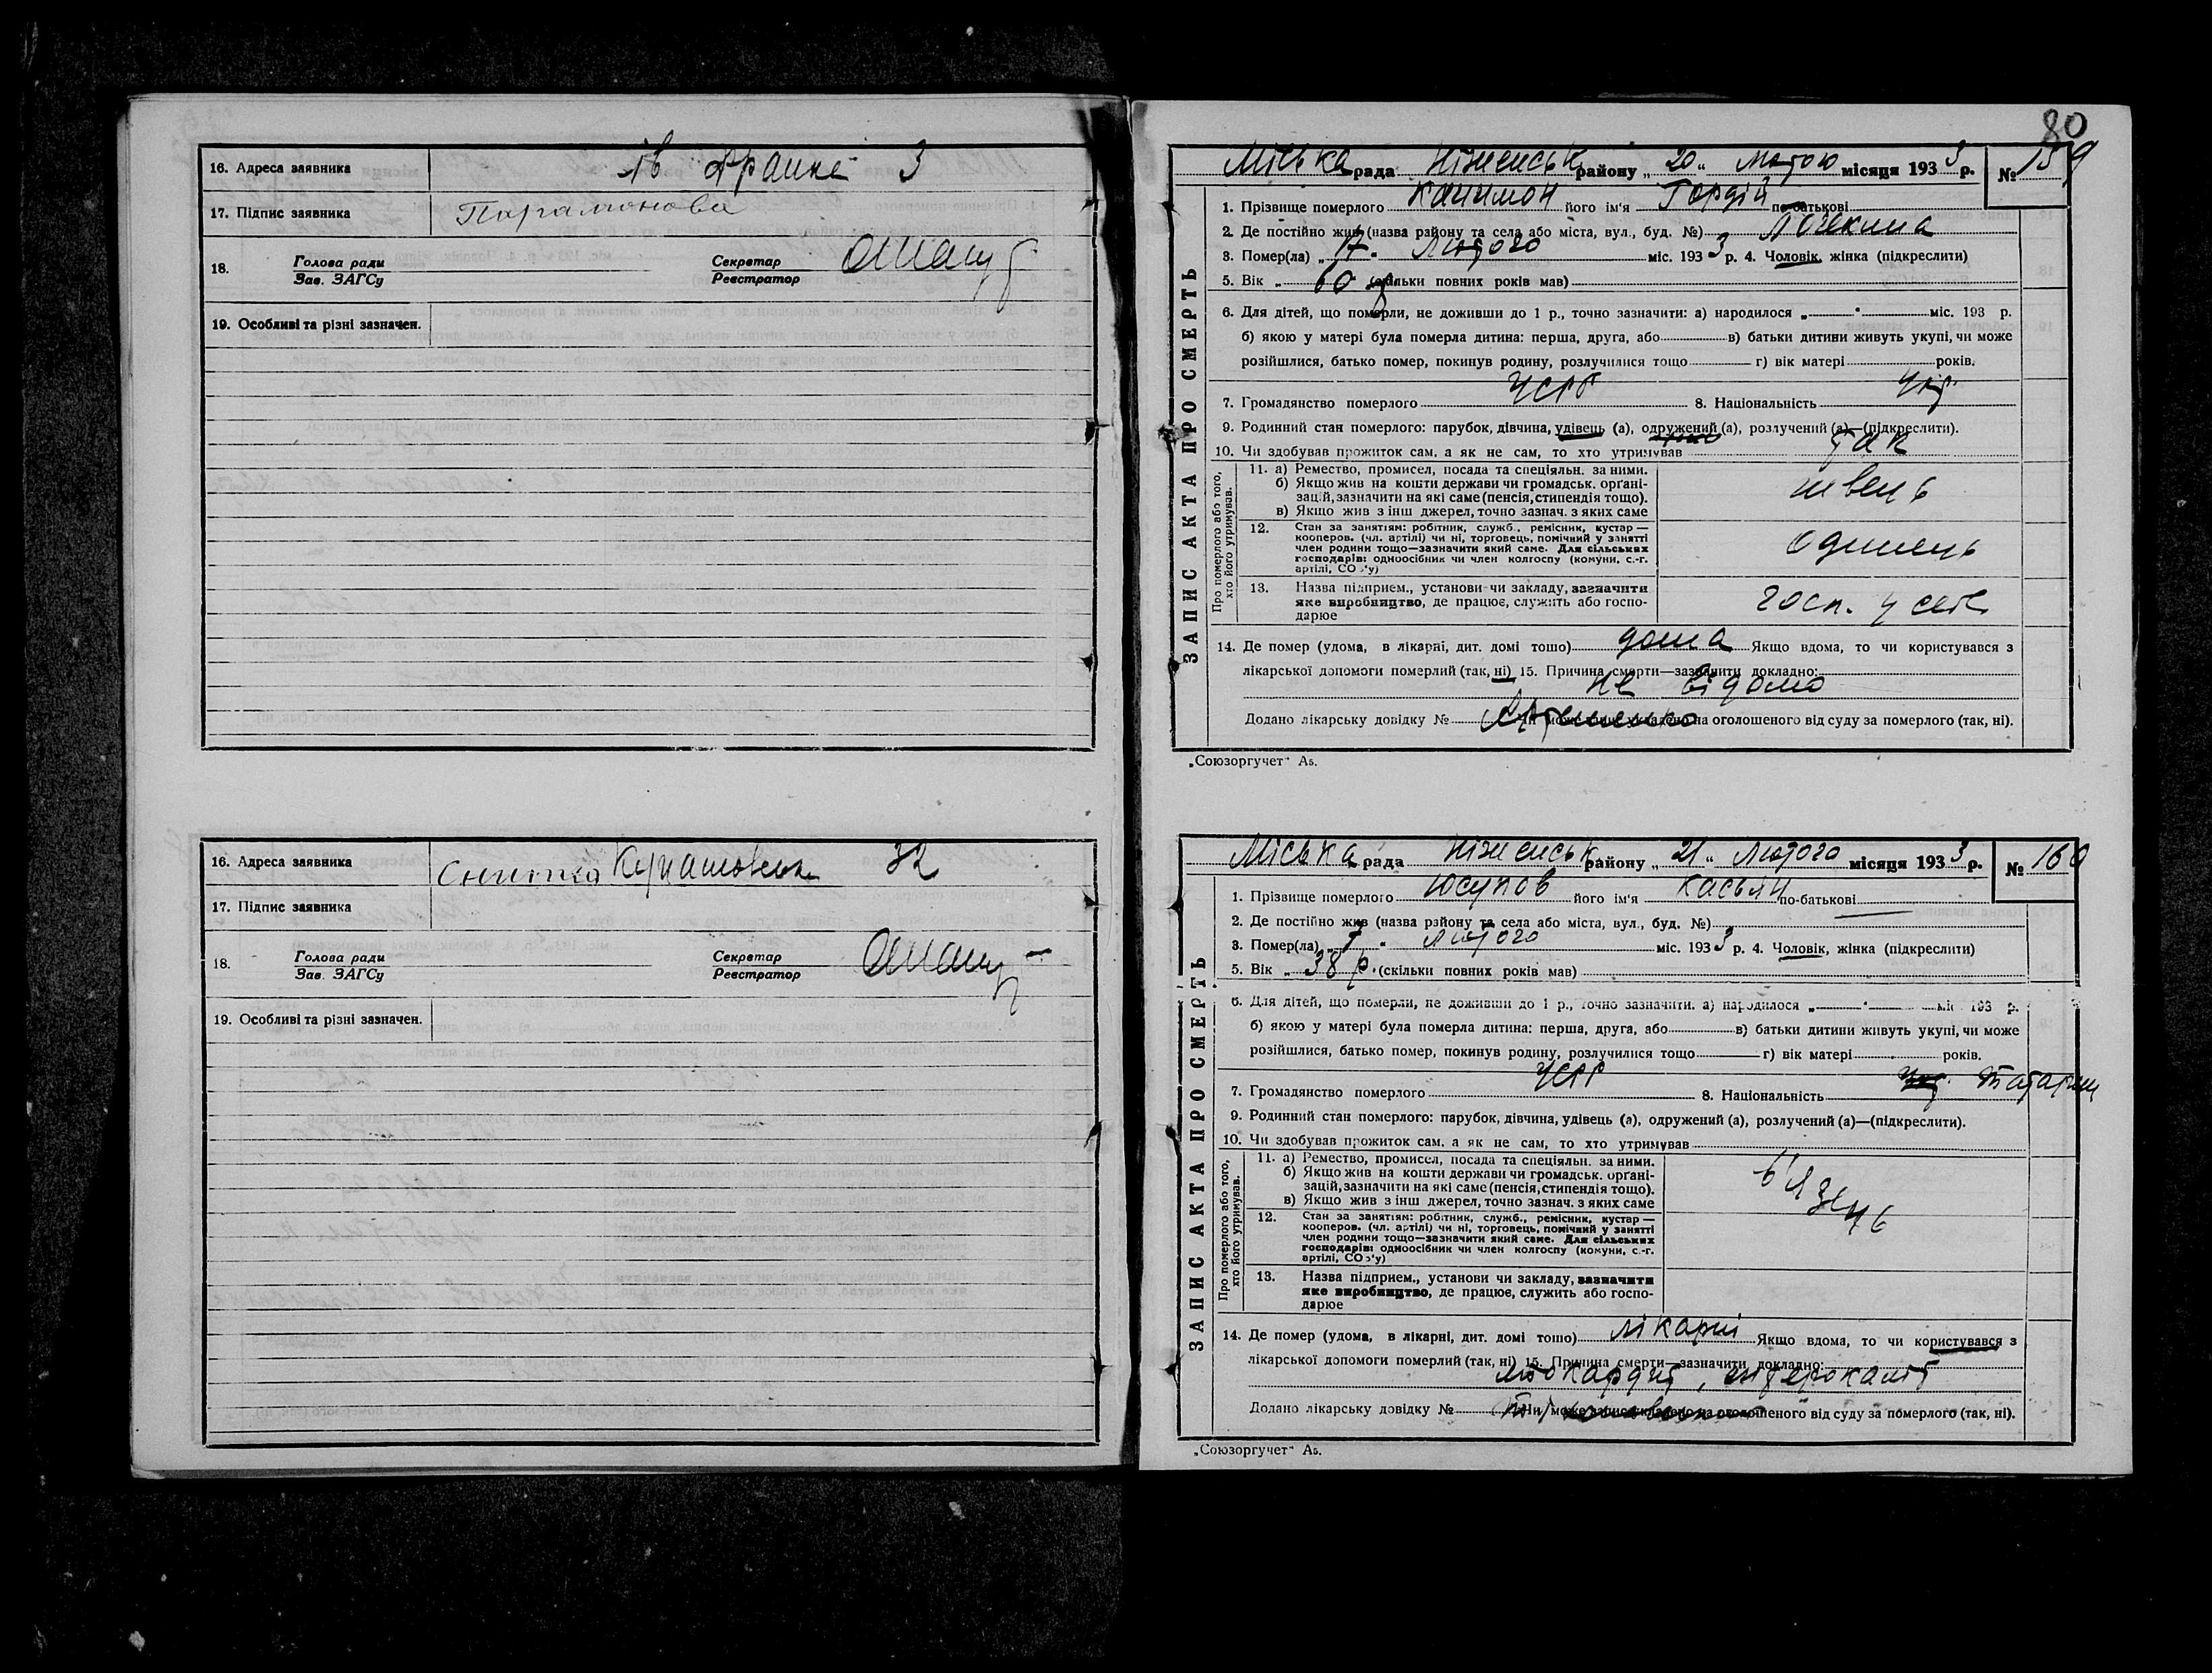 16. Адреса заявника Ів Франка 3
17. Підпис заявника Парамонова
18. Голова ради Зав. ЗАГСу Секретар Реєстратор
19. Особливі та різні зазначен.
16. Адреса заявника 32
17. Підпис заявника
18. Голова ради Зав. ЗАГСу Секретар Реєстратор
19. Особливі та різні зазначен.
80
Міська рада Ніженськ району „ 20 “ лютого місяця 1933 р. № 159
ЗАПИС АКТА ПРО СМЕРТЬ
1. Прізвище померлого Качимон його ім'я Гордій по-батькові
2. Де постійно жив (назва району та села або міста, вул., буд. №)
3. Помер(ла) „ 17 “ Лютого міс. 1933 р. 4. Чоловік, жінка (підкреслити)
5. Вік „ 60 (скільки повних років мав)
6. Для дітей, що померли, не доживши до 1 р., точно зазначити: а) народилося „ “ міс. 193 р.
б) якою у матері була померла дитина: перша, друга, або в) батьки дитини живуть укупі, чи може
розійшлися, батько помер, покинув родину, розлучилися тощо г) вік матері років.
7. Громадянство померлого УСРР 8. Національність Укр.
9. Родинний стан померлого: парубок, дівчина, удівець (а), одружений (а), розлучений (а)—(підкреслити).
10. Чи здобував прожиток сам, а як не сам, то хто утримував так
Про померлого або того, хто його утримував.
11. а) Ремество, промисел, посада та спеціяльн. за ними.
б) Якщо жив на кошти держави чи громадськ. органі-
зацій, зазначити на які саме (пенсія, стипендія тощо).
в) Якщо жив з інш джерел, точно зазнач. з яких саме
швець
12. Стан за занятіям: робітник, служб., ремісник, кустар —
кооперов. (чл. артілі) чи ні, торговець, помічний у занятті
член родини тощо—зазначити який саме. Для сільських
господарів: одноосібник чи член колгоспу (комуни, с.-г.
артілі, СОЗ'у)
одинець
13. Назва підприєм., установи чи закладу, зазначити
яке виробництво, де працює, служить або госпо-
дарює
госп. у селі
14. Де помер (удома, в лікарні, дит. домі тощо) дома Якщо вдома, то чи користувався з
лікарської допомоги померлий (так, ні) 15. Причина смерти—зазначити докладно:
не відомо
Додано лікарську довідку № Чи може запис складено на оголошеного від суду за померлого (так, ні).
„Союзоргучет“ А5.
Міська рада Ніженськ району „ 21 “ Лютого місяця 1933 р. № 160
ЗАПИС АКТА ПРО СМЕРТЬ
1. Прізвище померлого Юсупов його ім'я Касьян по-батькові
2. Де постійно жив (назва району та села або міста, вул., буд. №)
3. Помер(ла) „ 7 “ Лютого міс. 1933 р. 4. Чоловік, жінка (підкреслити)
5. Вік „ 38 р. (скільки повних років мав)
6. Для дітей, що померли, не доживши до 1 р., точно зазначити: а) народилося „ “ міс. 193 р.
б) якою у матері була померла дитина: перша, друга, або в) батьки дитини живуть укупі, чи може
розійшлися, батько помер, покинув родину, розлучилися тощо г) вік матері років.
7. Громадянство померлого УСРР 8. Національність Укр. Татарин
9. Родинний стан померлого: парубок, дівчина, удівець (а), одружений (а), розлучений (а)—(підкреслити).
10. Чи здобував прожиток сам, а як не сам, то хто утримував
Про померлого або того, хто його утримував.
11. а) Ремество, промисел, посада та спеціяльн. за ними.
б) Якщо жив на кошти держави чи громадськ. органі-
зацій, зазначити на які саме (пенсія, стипендія тощо).
в) Якщо жив з інш джерел, точно зазнач. з яких саме
в'язень
12. Стан за занятіям: робітник, служб., ремісник, кустар —
кооперов. (чл. артілі) чи ні, торговець, помічний у занятті
член родини тощо—зазначити який саме. Для сільських
господарів: одноосібник чи член колгоспу (комуни, с.-г.
артілі, СОЗ'у)
13. Назва підприєм., установи чи закладу, зазначити
яке виробництво, де працює, служить або госпо-
дарює
14. Де помер (удома, в лікарні, дит. домі тощо) лікарні Якщо вдома, то чи користувався з
лікарської допомоги померлий (так, ні) 15. Причина смерти—зазначити докладно:
міокардит, ентероколіт
Додано лікарську довідку № Чи може запис складено на оголошеного від суду за померлого (так, ні).
„Союзоргучет“ А5.